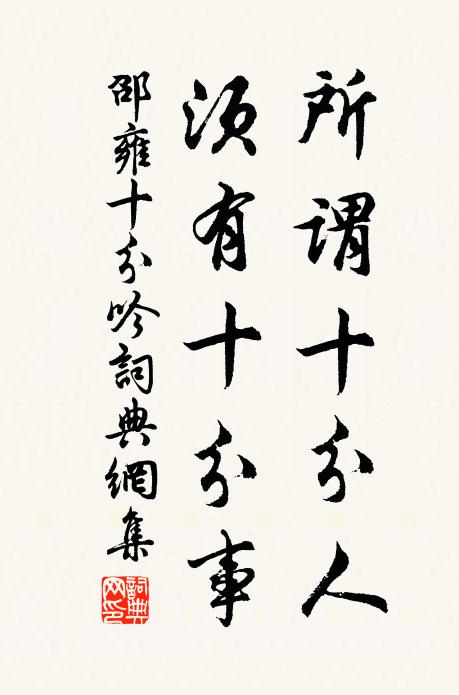 所謂十分人
須有十分事
邵雍十分吟詞典網集
詞典網印